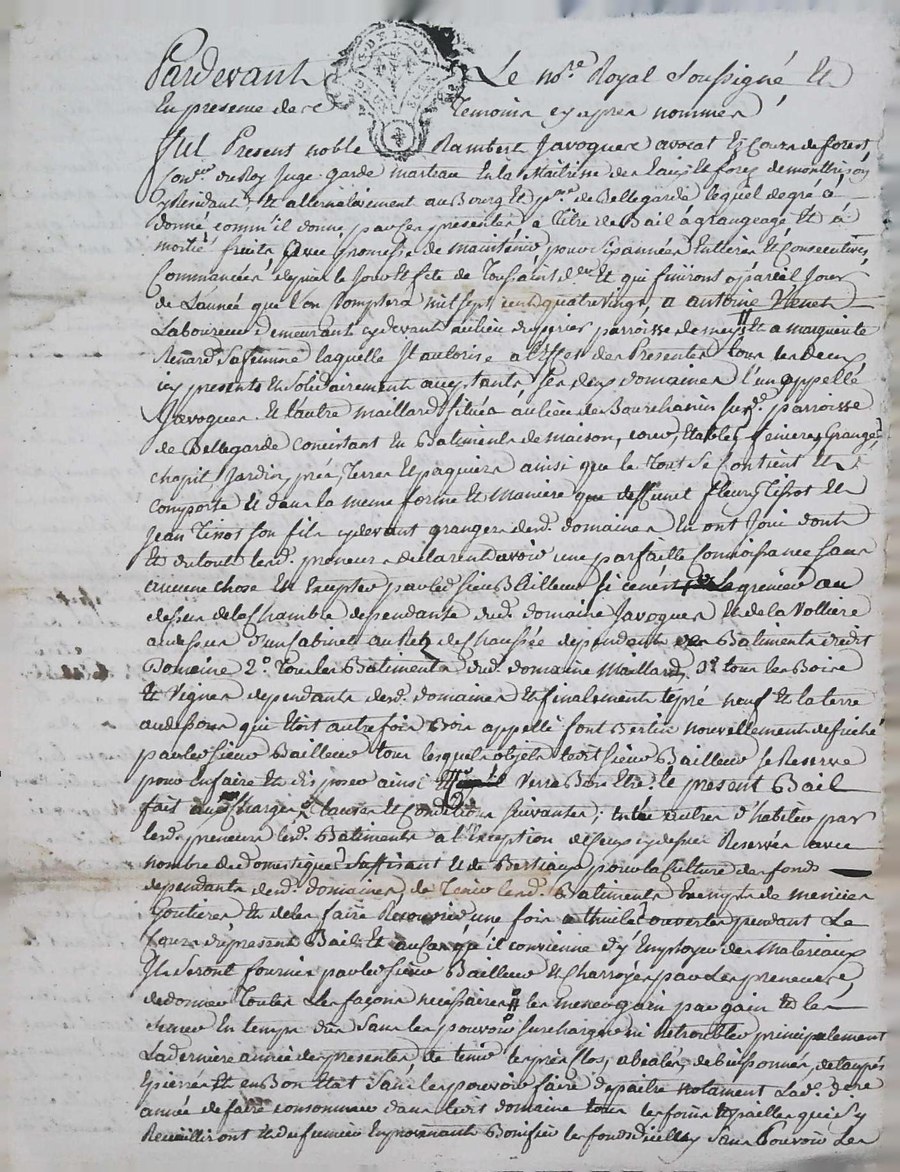 Pardevant Le no.re Royal soussigné Et
En presence des temoins cy apres nommés
fut Present noble Rambert Javogues avocat Es Cours de forest
Con.er du Roy Juge garde marteau En la Maitrise des Eaux Et forez de montbrison
y Residant, Et alternativement au Bourg Et p.sse de Bellegarde lequel degré a
donné comm'il donne par ces presentes a titre de Bail a grangeage Et a
moitié fruits avec promesse de maintenir pour années Entieres Et Consecutives
Commancées depuis le Jour Et fete de Toussaint d.er Et qui finiront a pareil Jour
de L'année que l'on Comptera mil sept cent quatre vingt, a antoine
Laboureur demeurant cy devant au lieu parroisse de Et a marguerite
Renard sa femme laquelle Il autorise a l'Effet des Presentes tous les deux
icy presents Et solidairement acceptants ses deux domaines l'un appellé
Javogues Et l'autre Maillard situés au lieu de Bourchanin sus d.e parroisse
de Bellegarde concistant En Batiments de maison, cour, Etables, fenieres, Grange
chapit Jardin, prés, Terres Et paquiers ainsi que le Tout se Contient Et
comporte Et dans la meme forme Et Maniere que deffunct fleury Tissot Et
Jean Tissot son fils cy devant granger desd. domaines En ont Joui dont
Et du tout lesd. preneurs declarent avoir une parfaite Connoissance sans
aucune chose En Excepter par led sieur Bailleur si ce n'est Le grenier au
dessus de la Chambre dependante dud. domaine Javogues Et de la Volliere
au dessus d'un Cabinet au Rez de Chaussée dependant des Batiments dudit
Domaine 2.o Tous les Batiments dud. domaine Maillard, 3.o tous les Bois
Et Vignes dependants desd. domaines Et finalement le pré neuf Et la terre
au dessous qui Etoit autrefois Bois appellé font Bertin nouvellement defriché
par led sieur Bailleur tous lesquels objets ledit sieur Bailleur se Reserve
pour En faire Et disposer ainsi Et verra Bon Etre, le present Bail
fait aux Charges Clauses Et Conditions suivantes, Entre autres d'habiter par
lesd. preneurs lesd. Batiments a l'Exception de ceux cy dessus Reservés avec
nombre de domestiques suffisant Et de Bestiaux pour la Culture des fonds
dependants desd. domaines, de Tenir lesd. Batiments Exempts de menües
Goutieres Et de les faire Recouvrir une fois a thuile ouverte pendant Le
Cours du present Bail Et au cas qu'il convienne d'y Employer des Materiaux
Ils seront fournis par led sieur Bailleur Et Charroyés par Les preneurs,
de donner Toutes Les façons necessaires les mener gain par gain Et les
semer En temps du sans les pouvoir surcharger ni Retroubler principalement
La derniere année des presentes de tenir les prés clos, abealés, debuissonnés, detaupés
Epierrés Et en Bon Etat sans les pouvoir faire depaitre notament Lad. d.ere
année de faire consommer dans lesdit domaine tous les foins Et pailles qui s'y
Recueilliront Et du fumier En provenant Bonifier les fonds d'icelluy sans Pouvoir Les